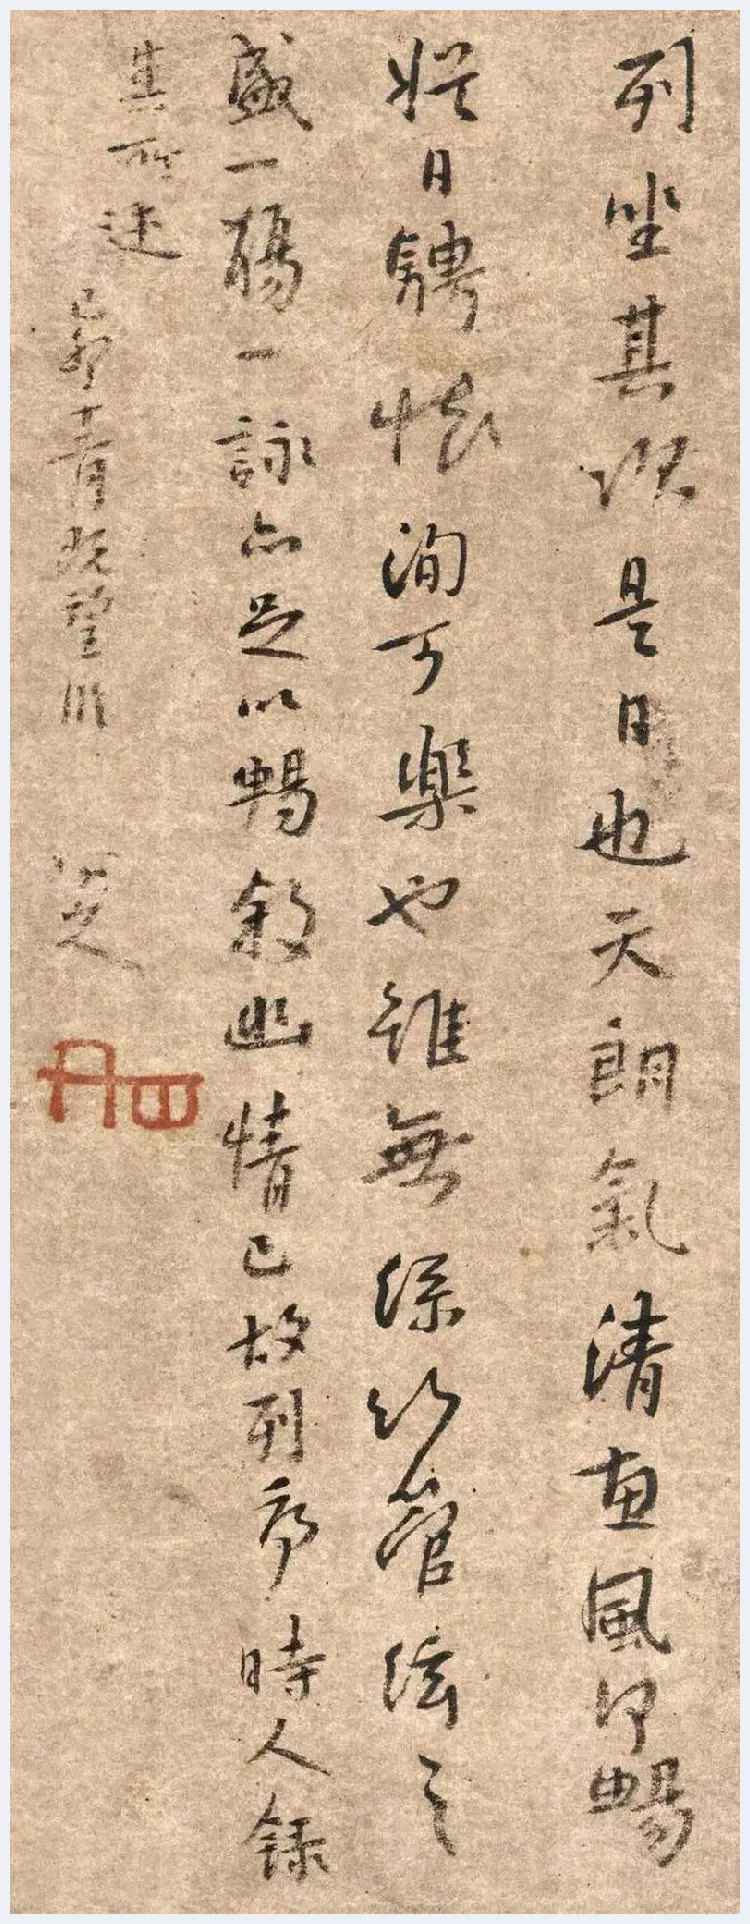 列坐其次是日也天朗氣清惠風和暢
娛日騁懷洵可樂也雖無絲竹管絃之
盛一觴一詠亦足以暢敘幽情已故列序時人錄
其所述
己卯十青既望臨
八大